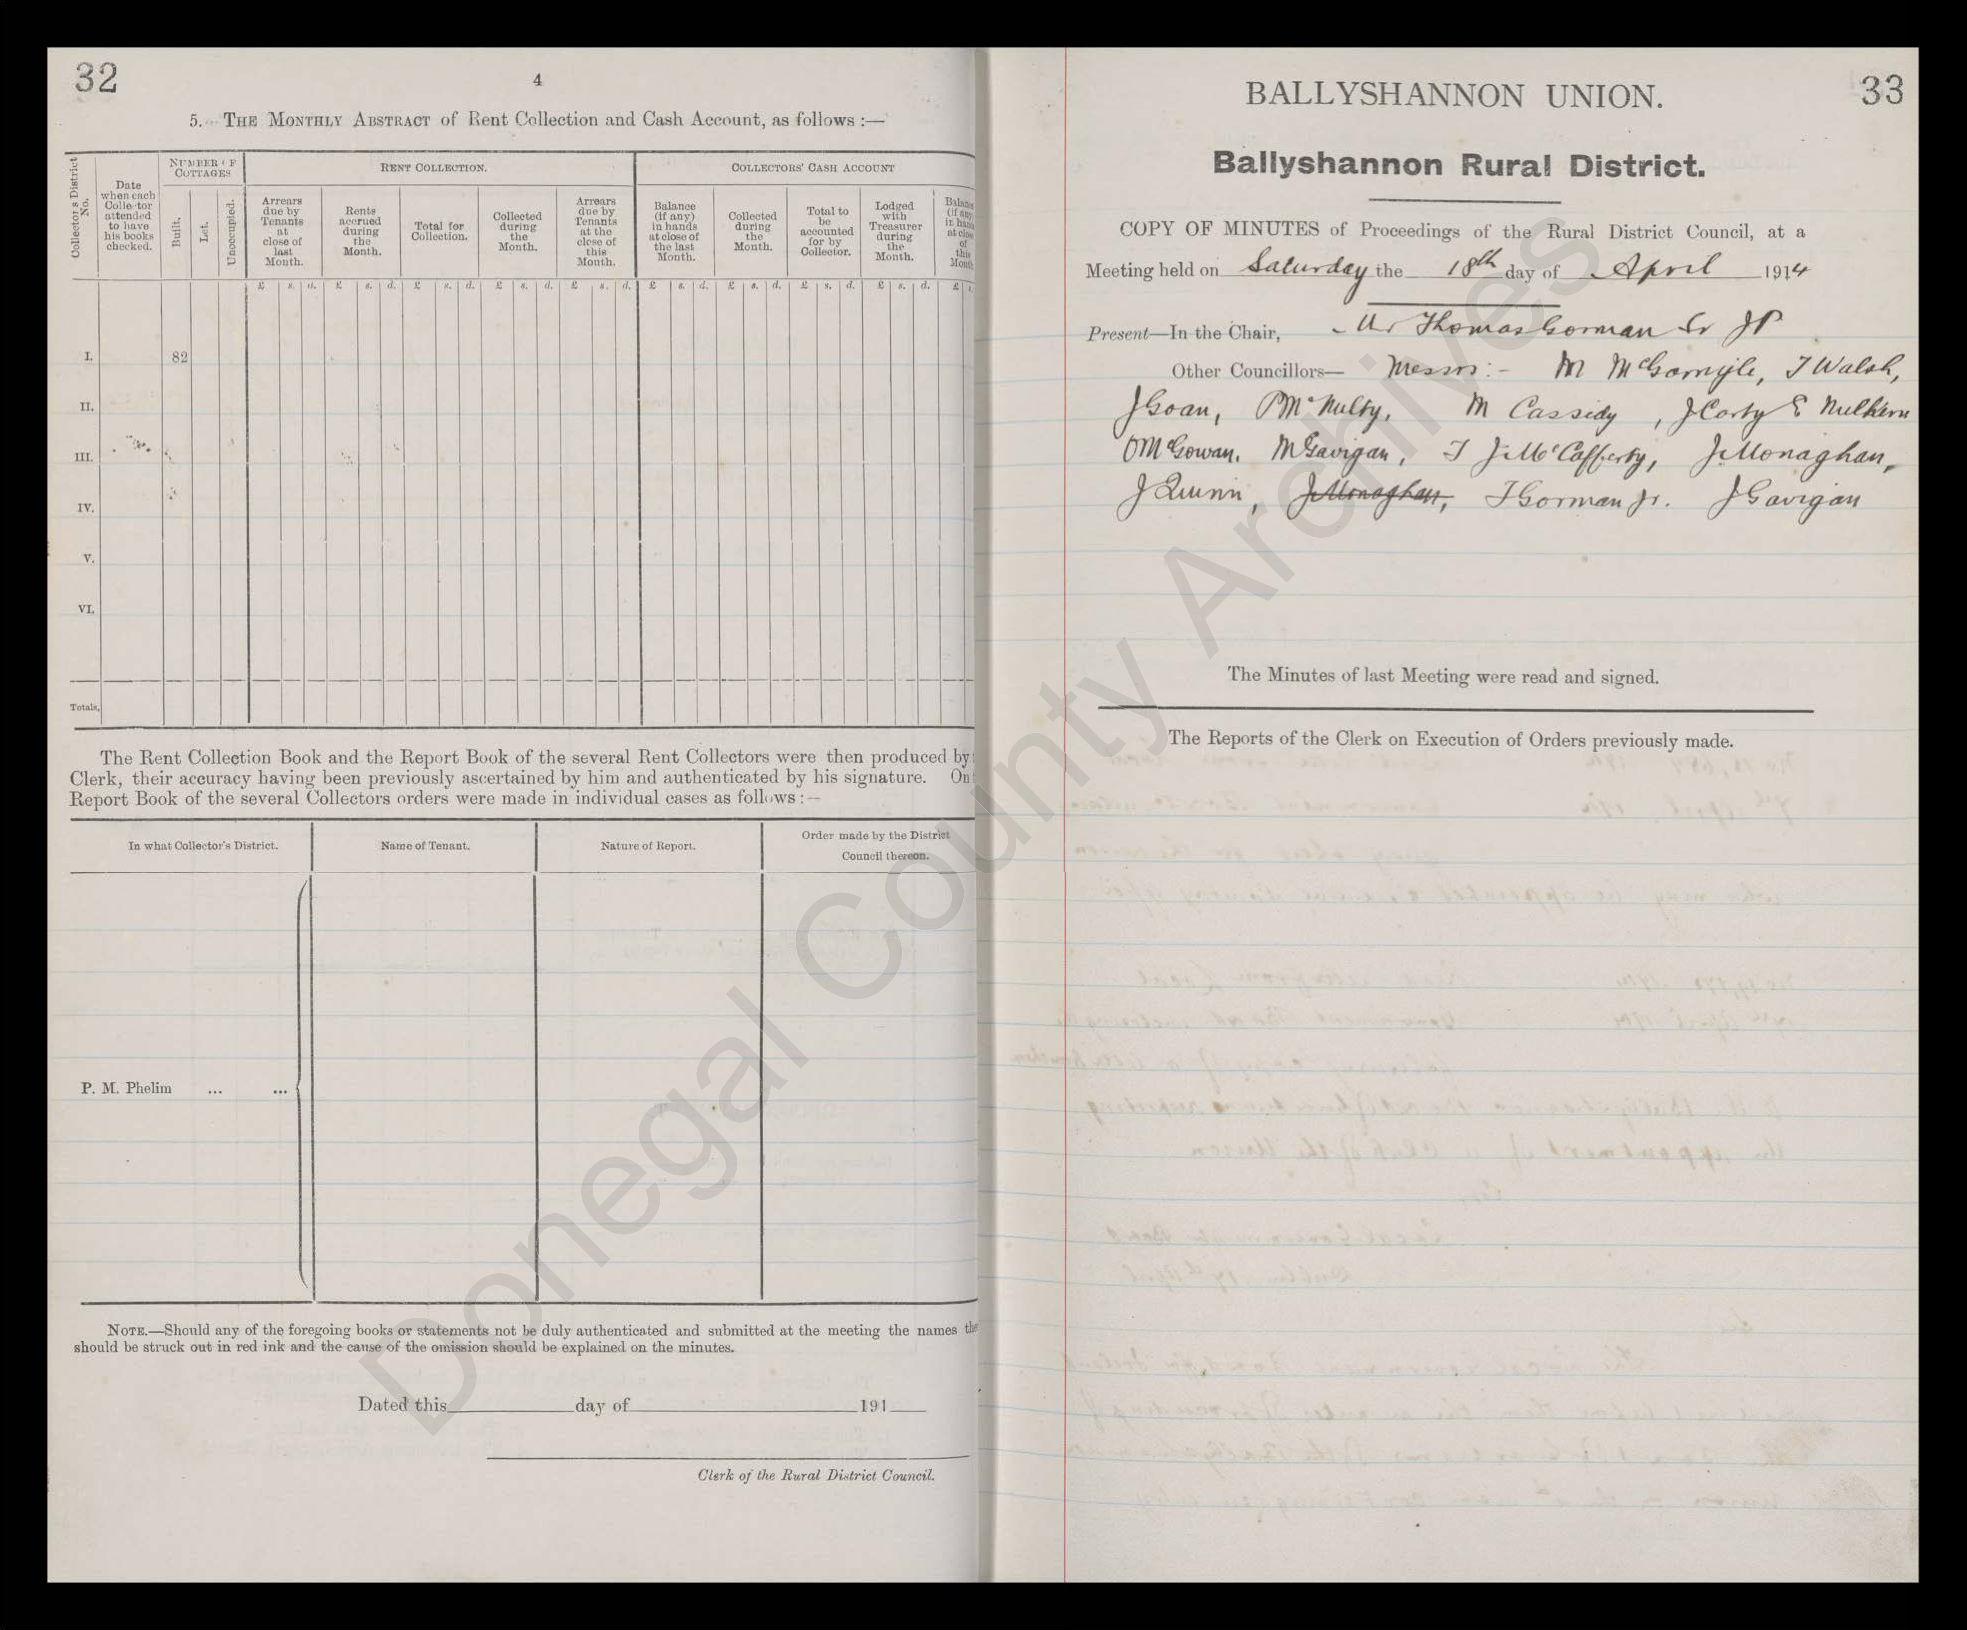 32
4
5. THE MONTHLY ABSTRACT of Rent Collection and Cash Account, as follows :—
Collector's District No.
Date when each Collector attended to have his books checked.
NUMBER OF COTTAGES
Built.
Let.
Unoccupied.
RENT COLLECTION.
Arrears due by Tenants at close of last Month.
Rents accrued during the Month.
Total for Collection.
Collected during the Month.
Arrears due by Tenants at the close of this Month.
COLLECTORS' CASH ACCOUNT
Balance (if any) in hands at close of the last Month.
Collected during the Month.
Total to be accounted for by Collector.
Lodged with Treasurer during the Month.
Balance (if any in hands at close of this Month
£ s. d. £ s. d. £ s. d. £ s. d. £ s. d. £ s. d. £ s. d. £ s. d. £ s. d. £ s.
I. 82
II.
III.
IV.
V.
VI.
Totals,
The Rent Collection Book and the Report Book of the several Rent Collectors were then produced by
Clerk, their accuracy having been previously ascertained by him and authenticated by his signature. On
Report Book of the several Collectors orders were made in individual cases as follows :—
In what Collector's District.
Name of Tenant.
Nature of Report.
Order made by the District Council thereon.
P. M. Phelim ... ...
NOTE.—Should any of the foregoing books or statements not be duly authenticated and submitted at the meeting the names the
should be struck out in red ink and the cause of the omission should be explained on the minutes.
Dated this day of 191
Clerk of the Rural District Council.
33
BALLYSHANNON UNION.
Ballyshannon Rural District.
COPY OF MINUTES of Proceedings of the Rural District Council, at a
Meeting held on Saturday the 18th day of April 1914
Present—In the Chair, Mr Thomas Gorman Sr JP
Other Councillors— Messrs :- M McGarrigle, T Walsh,
J Goan, P McNulty, M Cassidy, J Corty E Mulhern
O McGowan, M Gavigan, T J McCafferty, J Monaghan,
J Quinn, J Monaghan, T Gorman Jr. J Gavigan
The Minutes of last Meeting were read and signed.
The Reports of the Clerk on Execution of Orders previously made.
Donegal County Archives